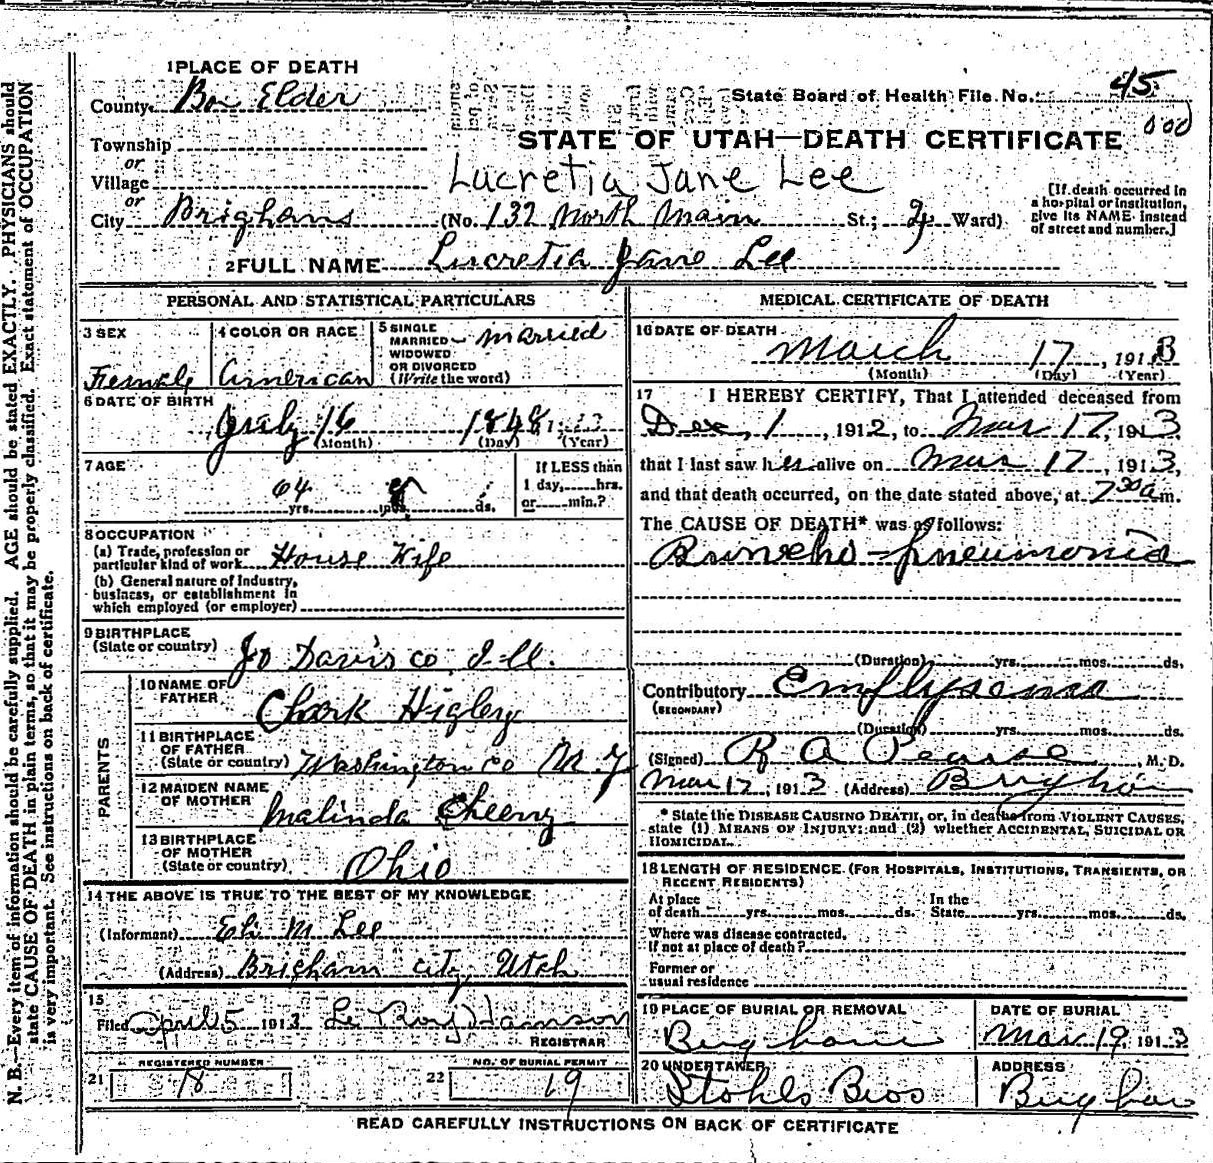 1 PLACE OF DEATH
County Box Elder
State Board of Health File No. 45
000
Township
or
Village
or
STATE OF UTAH—DEATH CERTIFICATE
Lucretia Jane Lee
City Brigham (No. 132 North Main St.; 4 Ward)
[If death occurred in
a hospital or institution,
give its NAME instead
of street and number.]
2 FULL NAME Lucretia Jane Lee
PERSONAL AND STATISTICAL PARTICULARS
3 SEX
Female
4 COLOR OR RACE
American
5 SINGLE
MARRIED
WIDOWED
OR DIVORCED
(Write the word)
Married
6 DATE OF BIRTH
July 16 1848
(Month) (Day) (Year)
7 AGE
64 yrs. 8 mos. ds.
If LESS than
1 day, hrs.
or min.?
8 OCCUPATION
(a) Trade, profession or
particular kind of work House Wife
(b) General nature of Industry,
business, or establishment in
which employed (or employer)
9 BIRTHPLACE
(State or country) Jo Davis co Ill.
PARENTS
10 NAME OF
FATHER Higley
11 BIRTHPLACE
OF FATHER
(State or country) Washington co N.Y
12 MAIDEN NAME
OF MOTHER Malinda Cheery
13 BIRTHPLACE
OF MOTHER
(State or country) Ohio
14 THE ABOVE IS TRUE TO THE BEST OF MY KNOWLEDGE
(Informant) Eli M Lee
(Address) Brigham City, Utah
15
Filed April 5 1913 Le Roy Harrison
REGISTRAR
REGISTERED NUMBER
21 18
NO. OF BURIAL PERMIT
22 19
MEDICAL CERTIFICATE OF DEATH
16 DATE OF DEATH
March 17, 1913
(Month) (Day) (Year)
17 I HEREBY CERTIFY, That I attended deceased from
Dec, 1, 1912, to Mar 17, 1913,
that I last saw her alive on Mar 17, 1913,
and that death occurred, on the date stated above, at 7 30 a m.
The CAUSE OF DEATH* was as follows:
Broncho-pneumonia
(Duration) yrs. mos. ds.
Contributory Emflysema
(SECONDARY)
(Duration) yrs. mos. ds.
(Signed) R A Pearse, M. D.
Mar 17, 1913 (Address) Brigham
* State the DISEASE CAUSING DEATH, or, in deaths from VIOLENT CAUSES,
state (1) MEANS OF INJURY; and (2) whether ACCIDENTAL, SUICIDAL OR
HOMICIDAL.
18 LENGTH OF RESIDENCE (FOR HOSPITALS, INSTITUTIONS, TRANSIENTS, OR
RECENT RESIDENTS)
At place
of death yrs. mos. ds.
In the
State yrs. mos. ds.
Where was disease contracted,
if not at place of death?
Former or
usual residence
19 PLACE OF BURIAL OR REMOVAL
Brigham
DATE OF BURIAL
Mar 19, 1913
20 UNDERTAKER
Stohls Bros
ADDRESS
Brigham
READ CAREFULLY INSTRUCTIONS ON BACK OF CERTIFICATE
N. B.—Every item of information should be carefully supplied. AGE should be stated EXACTLY. PHYSICIANS should
state CAUSE OF DEATH in plain terms, so that it may be properly classified. Exact statement of OCCUPATION
is very important. See instructions on back of certificate.